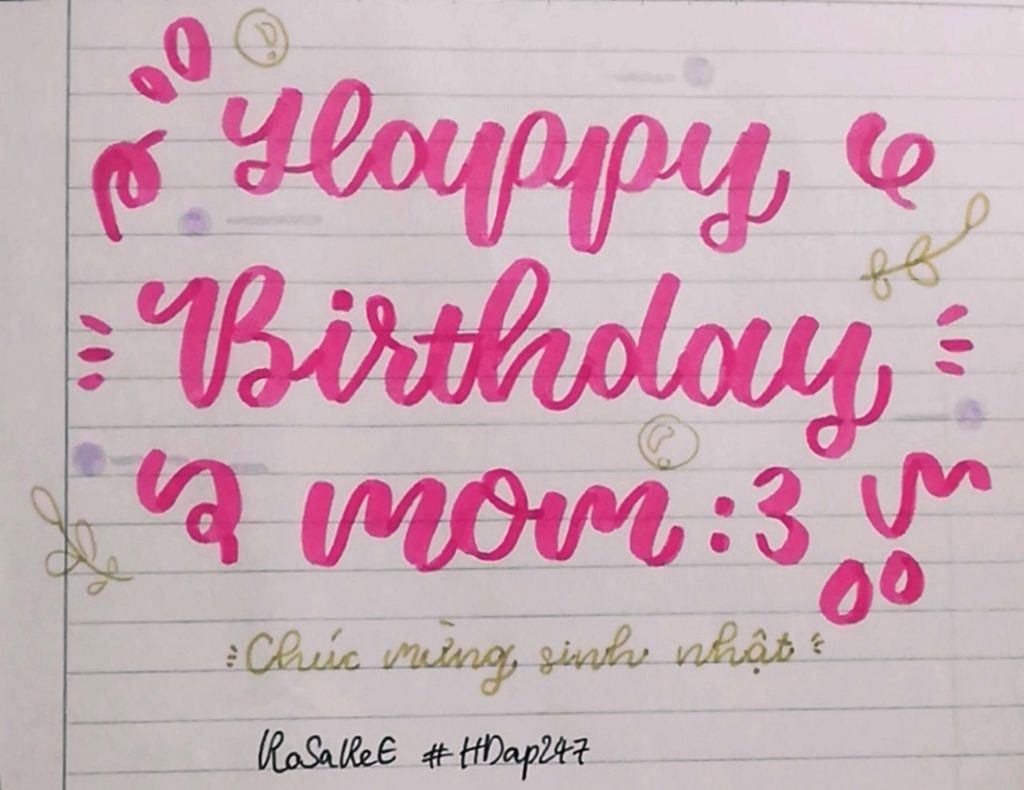 Happy
Birthday
mom :3
Chúc mừng sinh nhật
RoSaReE #HDap247